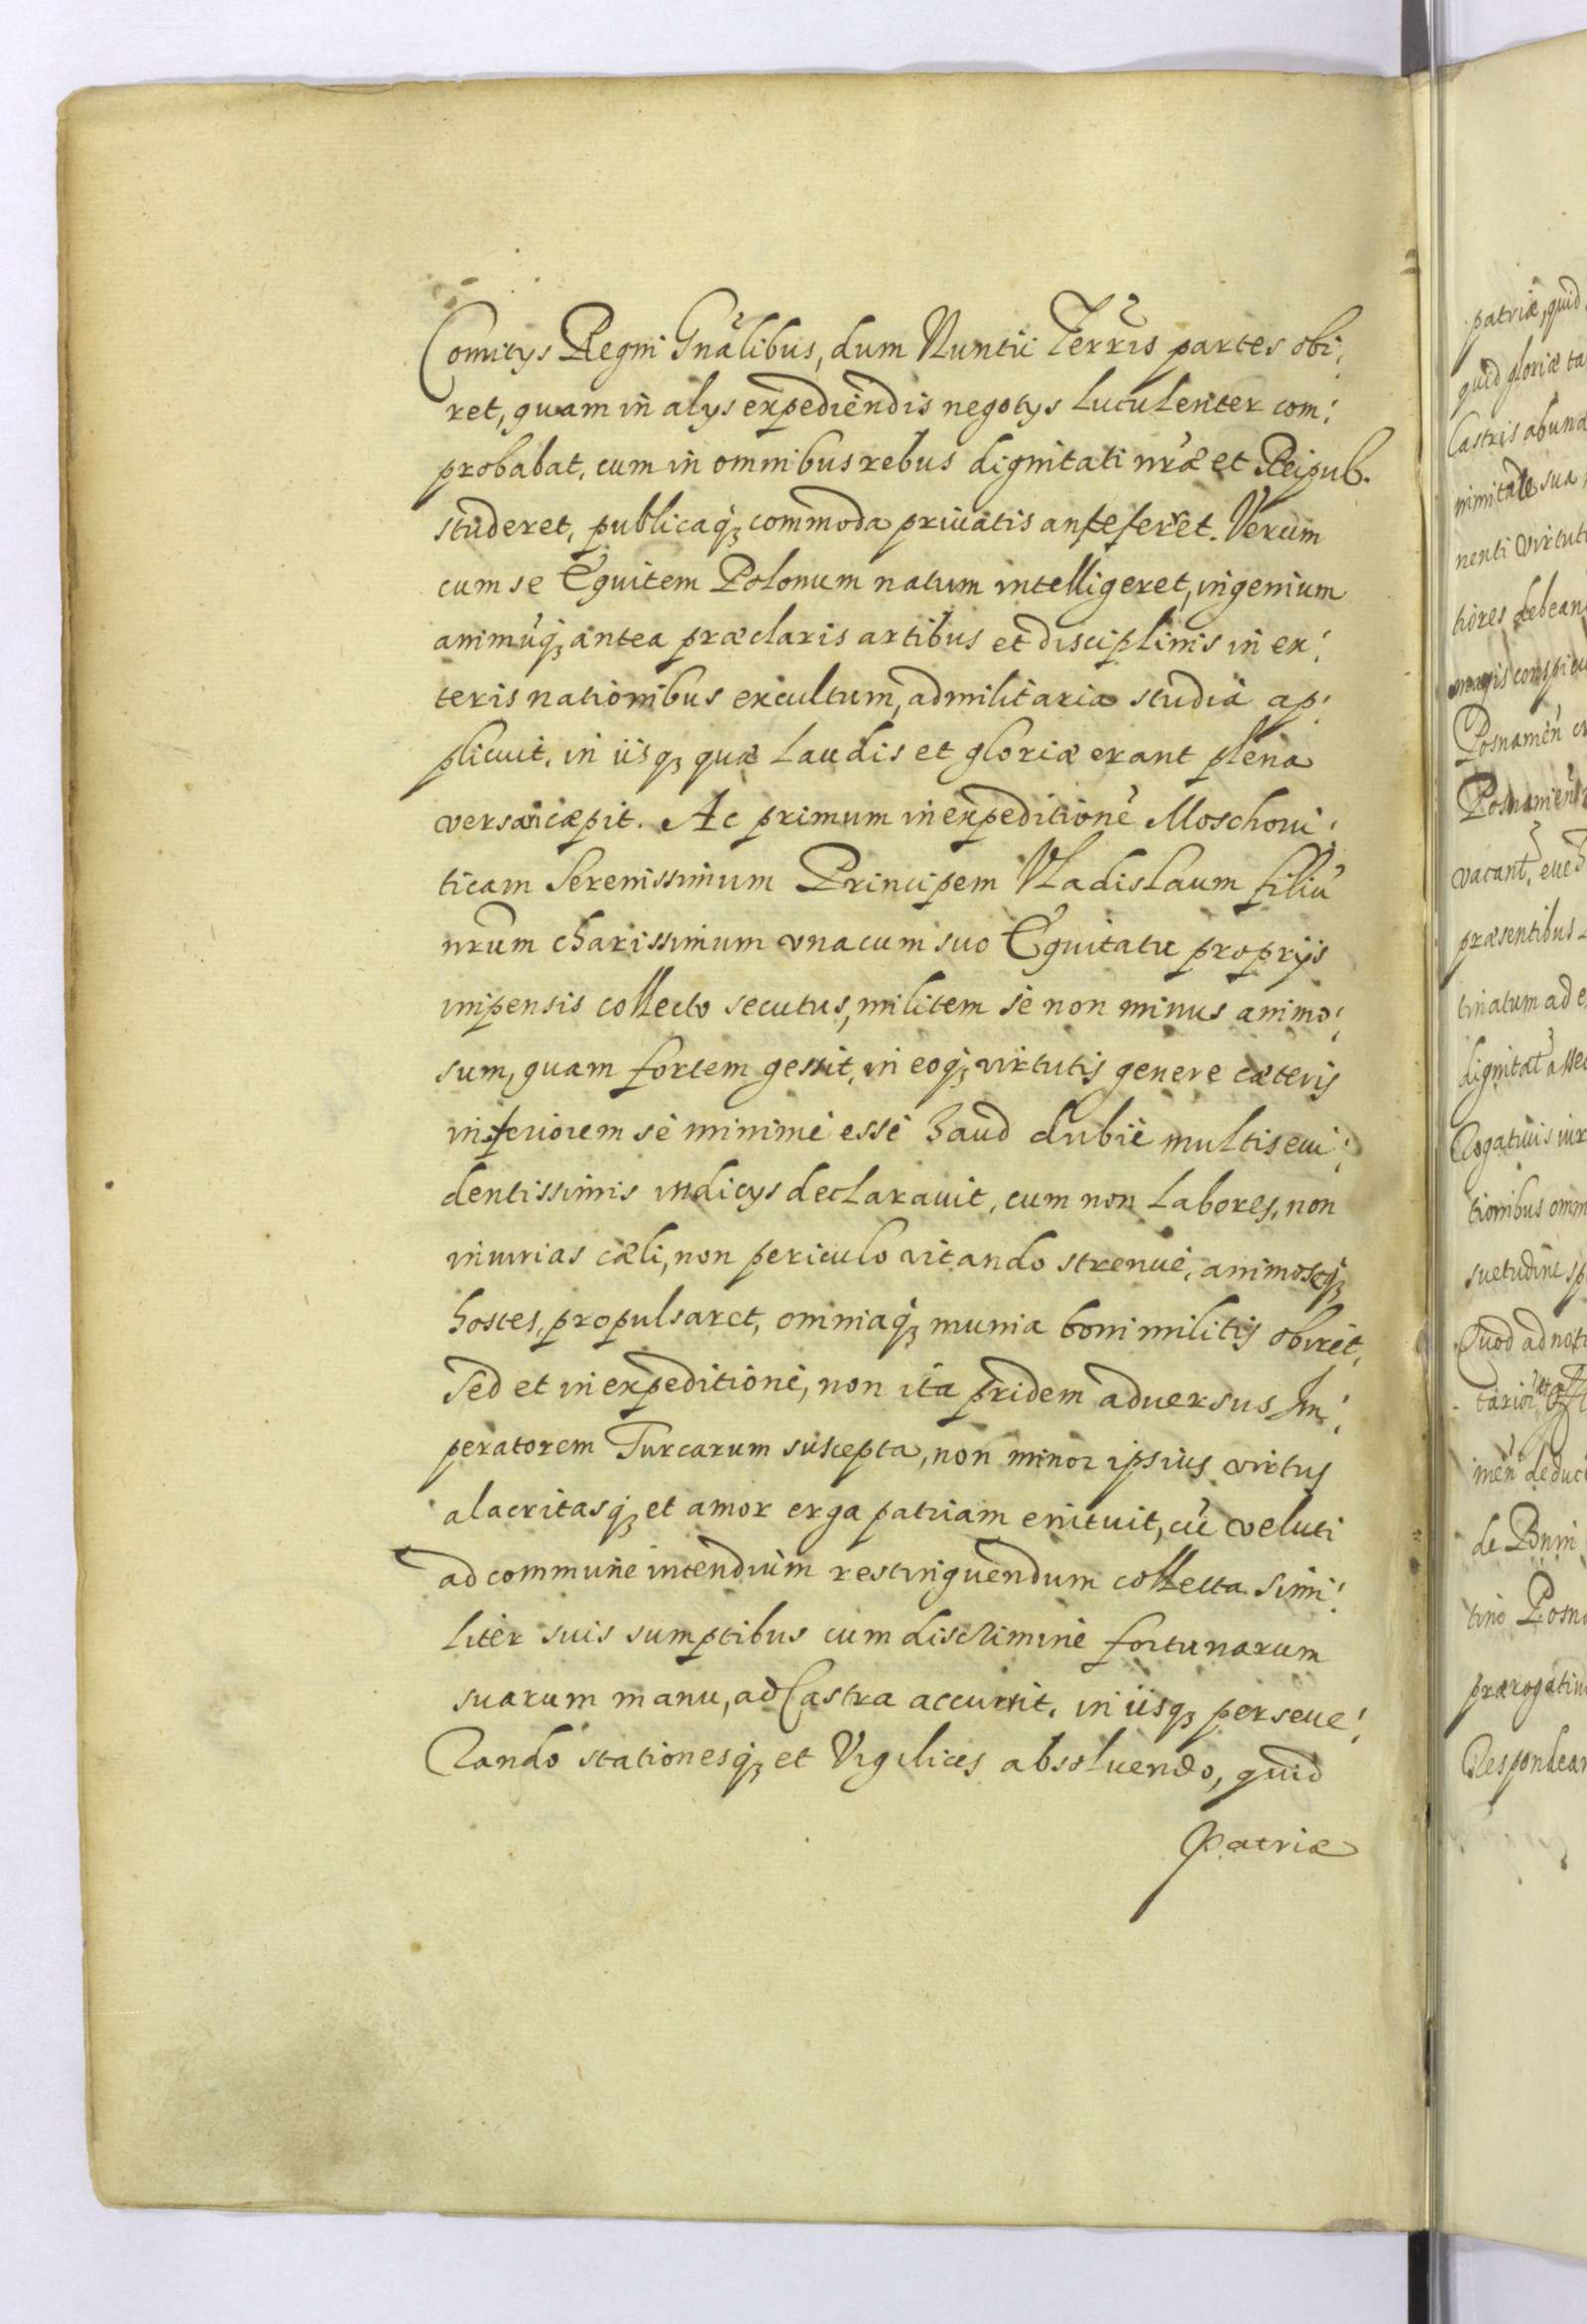 Comitys Regni Gnãlibus, dum Nuntii Terris partes obi:
ret, quam in alys expediendis negotys luculenter com:
probabat, cum in omnibus rebus dignitati nr̃æ et Reipub.
studeret, publicaq₃ commoda priuatis anteferret. Verum
cum se Equitem Polonum natum intelligeret, ingenium
animũq₃ antea præclaris artibus et disciplinis in ex:
teris nationibus excultum, ad militaria studia ap:
plicuit, in iisq₃ quæ laudis et gloriæ erant plena
versari cæpit. Ac primum in expeditionẽ Moschoui:
ticam Serenissimum Principem Vladislaum filiũ
nr̃um charissimum vna cum suo Equitatu proprijs
impensis collecto secutus, militem se non minus animo:
sum, quam fortem gessit, in eoq₃ virtutis genere cæteris
inferiorem se minime esse haud dubie multis eui:
dentissimis indicys declarauit, cum non labores, non
iniurias cæli, non periculo vitando strenue, animoseq₃
hostes, propulsaret, omniaq₃ munia boni militis obiret,
Sed et in expeditione, non ita pridem aduersus Im:
peratorem Turcarum suscepta, non minor ipsius virtus
alacritasq₃ et amor erga patriam enituit, cũ veluti
ad commune incendium restinguendum collecta simi:
liter suis sumptibus cum discrimine fortunarum
suarum manu, ad Castra accurrit, in iisq₃ perseue:
rando stationesq₃ et Vigilices absoluendo, quid
patriæ
patriæ, quid
quid gloriæ ta
Castris abund
nimitate sua,
nenti virtuti
tiores debean
magis conspicu
Posnamen̄
Posnanien̄
vacant,
præsentibus
tinatum ad e
dignitat̃ asse
rogatiuis iur
tionibus omn
suetudine sp
Quod ad noti
de Bnin
tino Posn
prærogatiu
Respondean